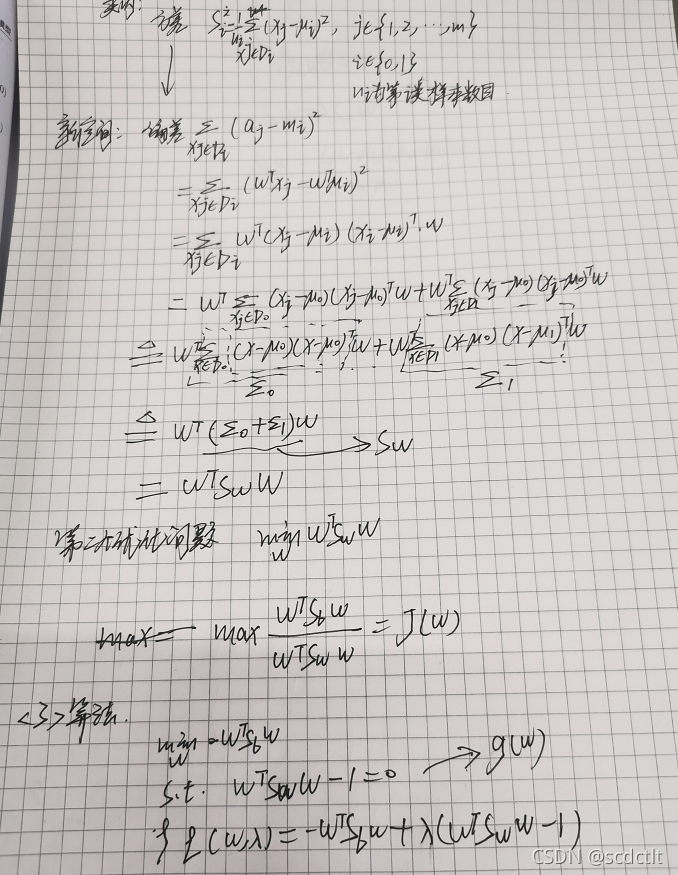 方差 S_i^2 = \frac{1}{n_i} \sum_{x_j∈D_i} (x_j-μ_i)^2, j∈{1,2,…,m}
i∈{0,1}
n_i为第i类样本数目
新空间: 偏差 \sum_{x_j∈D_i} (a_j-m_i)^2
= \sum_{x_j∈D_i} (W^T x_j - W^T μ_i)^2
= \sum_{x_j∈D_i} W^T(x_j-μ_i)(x_i-μ_i)^T·w
= W^T \sum_{x_j∈D_0} (x_j-μ_0)(x_j-μ_0)^T w + W^T \sum_{x_j∈D_1} (x_j-μ_0)(x_j-μ_0)^T w
≜ W^T \sum_{x∈D_0} (x-μ_0)(x-μ_0)^T w + W^T \sum_{x∈D_1} (x-μ_0)(x-μ_1)^T w
Σ_0 Σ_1
≜ W^T(Σ_0+Σ_1)w → S_w
= W^T S_w W
第二个优化问题 \min_w W^T S_w W
max= max \frac{W^T S_b w}{W^T S_w w} = J(w)
<3>算法.
\min_w -W^T S_b w
s.t. W^T S_w W - 1 = 0 → g(w)
L(w,λ) = -W^T S_b w + λ(W^T S_w w - 1)
CSDN @scdctlt